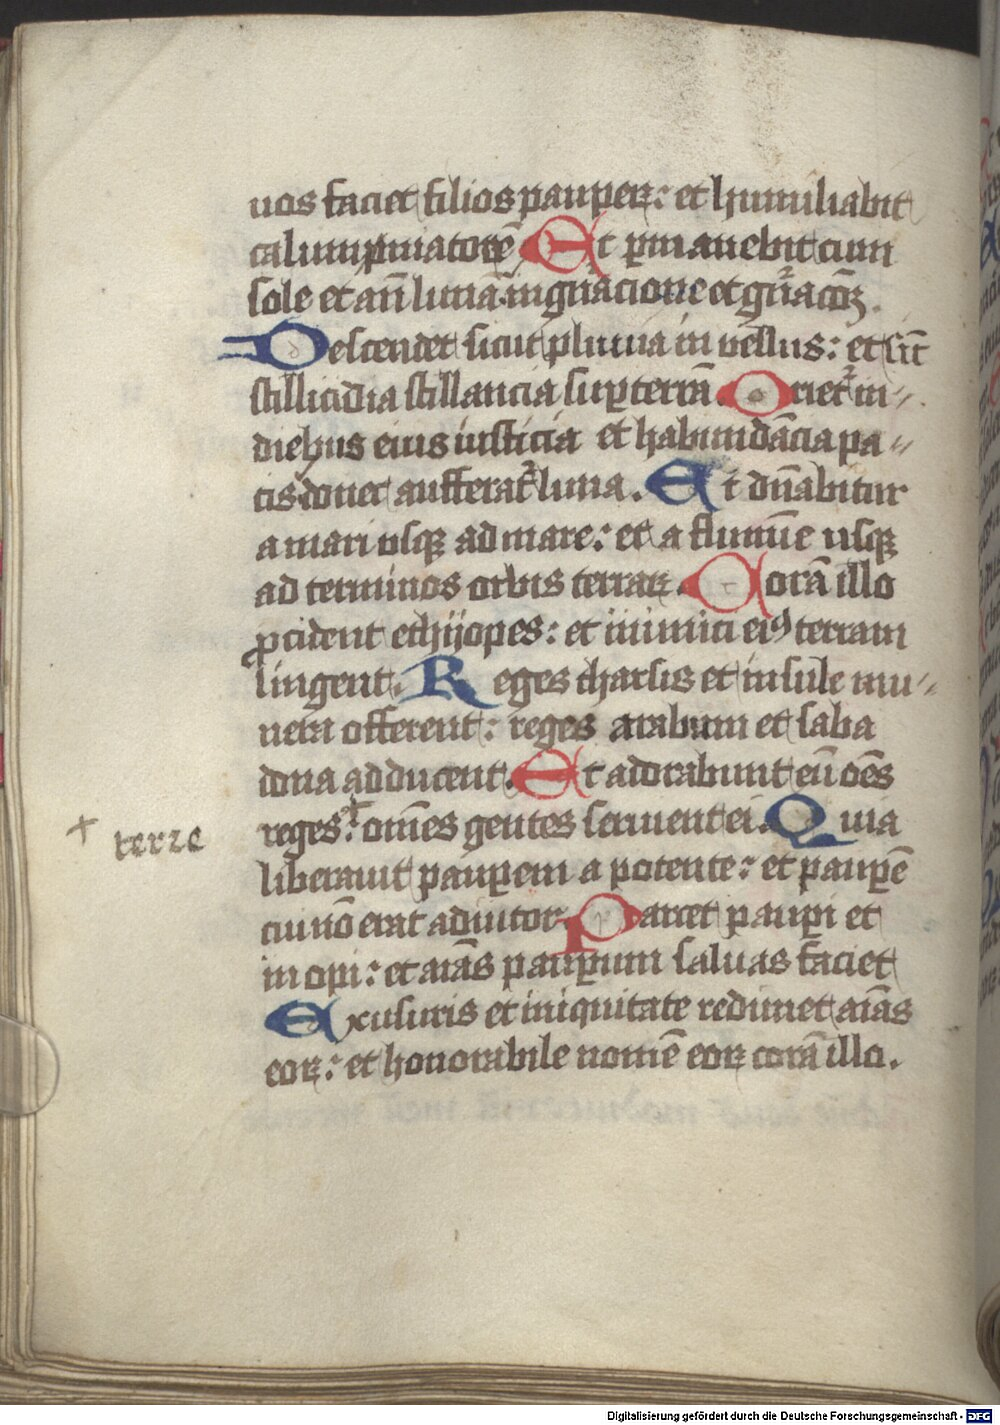 uos faciet filios pauperꝝ: et humiliabit
calumpniatorē Et ꝑmanebit cum
sole et an̄ lunā in gn̄acione et gn̄acōꝫ.
Descendet sicut pluuia in vellus: et sic̄
stillicidia stillancia suꝑ terrā. Orietᷣ in
diebus eius iusticia et habundācia pa
cis donec aufferatᷣ luna. Et dn̄abitur
a mari usqꝫ ad mare: et a flumīe usqꝫ
ad terminos orbis terraꝝ. Corā illo
ꝓcident ethijopes: et inimici eiꝰ terram
lingent. Reges tharsis et insule mu
nera offerent: reges arabum et saba
dona adducent. Et adorabunt eū oēs
reges: om̄es gentes seruient ei. Quia
+ terze
liberauit pauꝑem a potente: et pauꝑē
cui nō erat adiutor Parcet pauꝑi et
inopi: et aīas pauꝑum saluas faciet
Ex usuris et iniquitate redimet aīas
eoꝝ: et honorabile nomē eoꝝ corā illo.
Digitalisierung gefördert durch die Deutsche Forschungsgemeinschaft - DFG